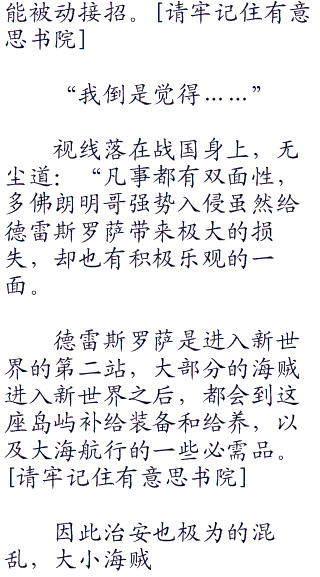 能被动接招。[请牢记住有意
思书院]
“我倒是觉得……”
视线落在战国身上，无
尘道：“凡事都有双面性，
多佛朗明哥强势入侵虽然给
德雷斯罗萨带来极大的损
失，却也有积极乐观的一
面。
德雷斯罗萨是进入新世
界的第二站，大部分的海贼
进入新世界之后，都会到这
座岛屿补给装备和给养，以
及大海航行的一些必需品。
[请牢记住有意思书院]
因此治安也极为的混
乱，大小海贼